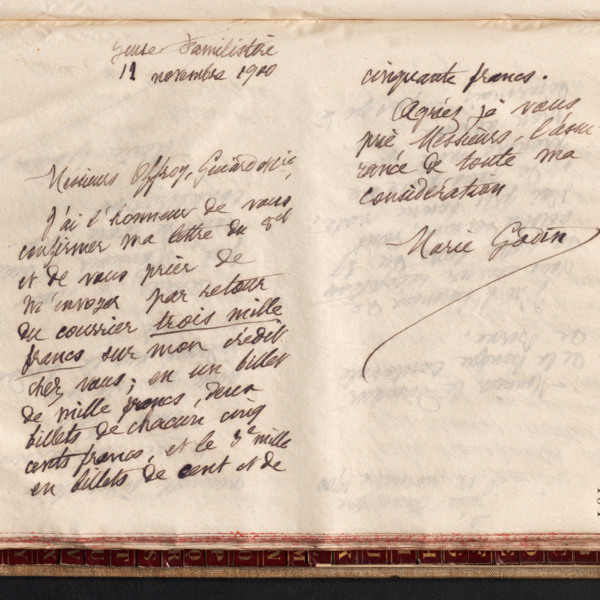 Guise Familistère
11 novembre 1900
Messieurs Offroy, Guiard & Cie,
J'ai l'honneur de vous
confirmer ma lettre du 8 ct
et de vous prier de
m'envoyer par retour
du courrier trois mille
francs sur mon crédit
chez vous; en un billet
de mille francs, deux
billets de chacun cinq
cents francs, et le 3e mille
en billets de cent et de
cinquante francs.
Agréez je vous
prie Messieurs, l'assu-
rance de toute ma
considération
Marie Godin